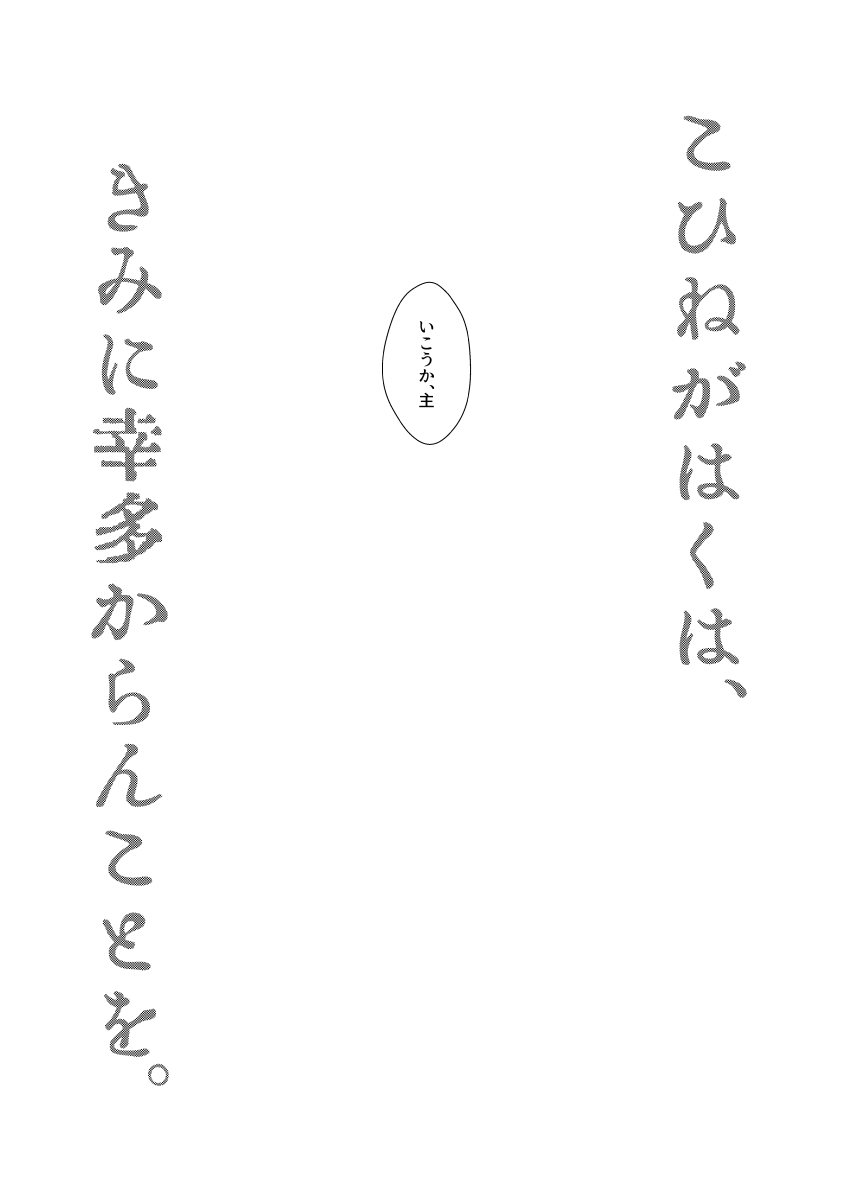 こひねがはくは、
いこうか、主
きみに幸多からんことを。